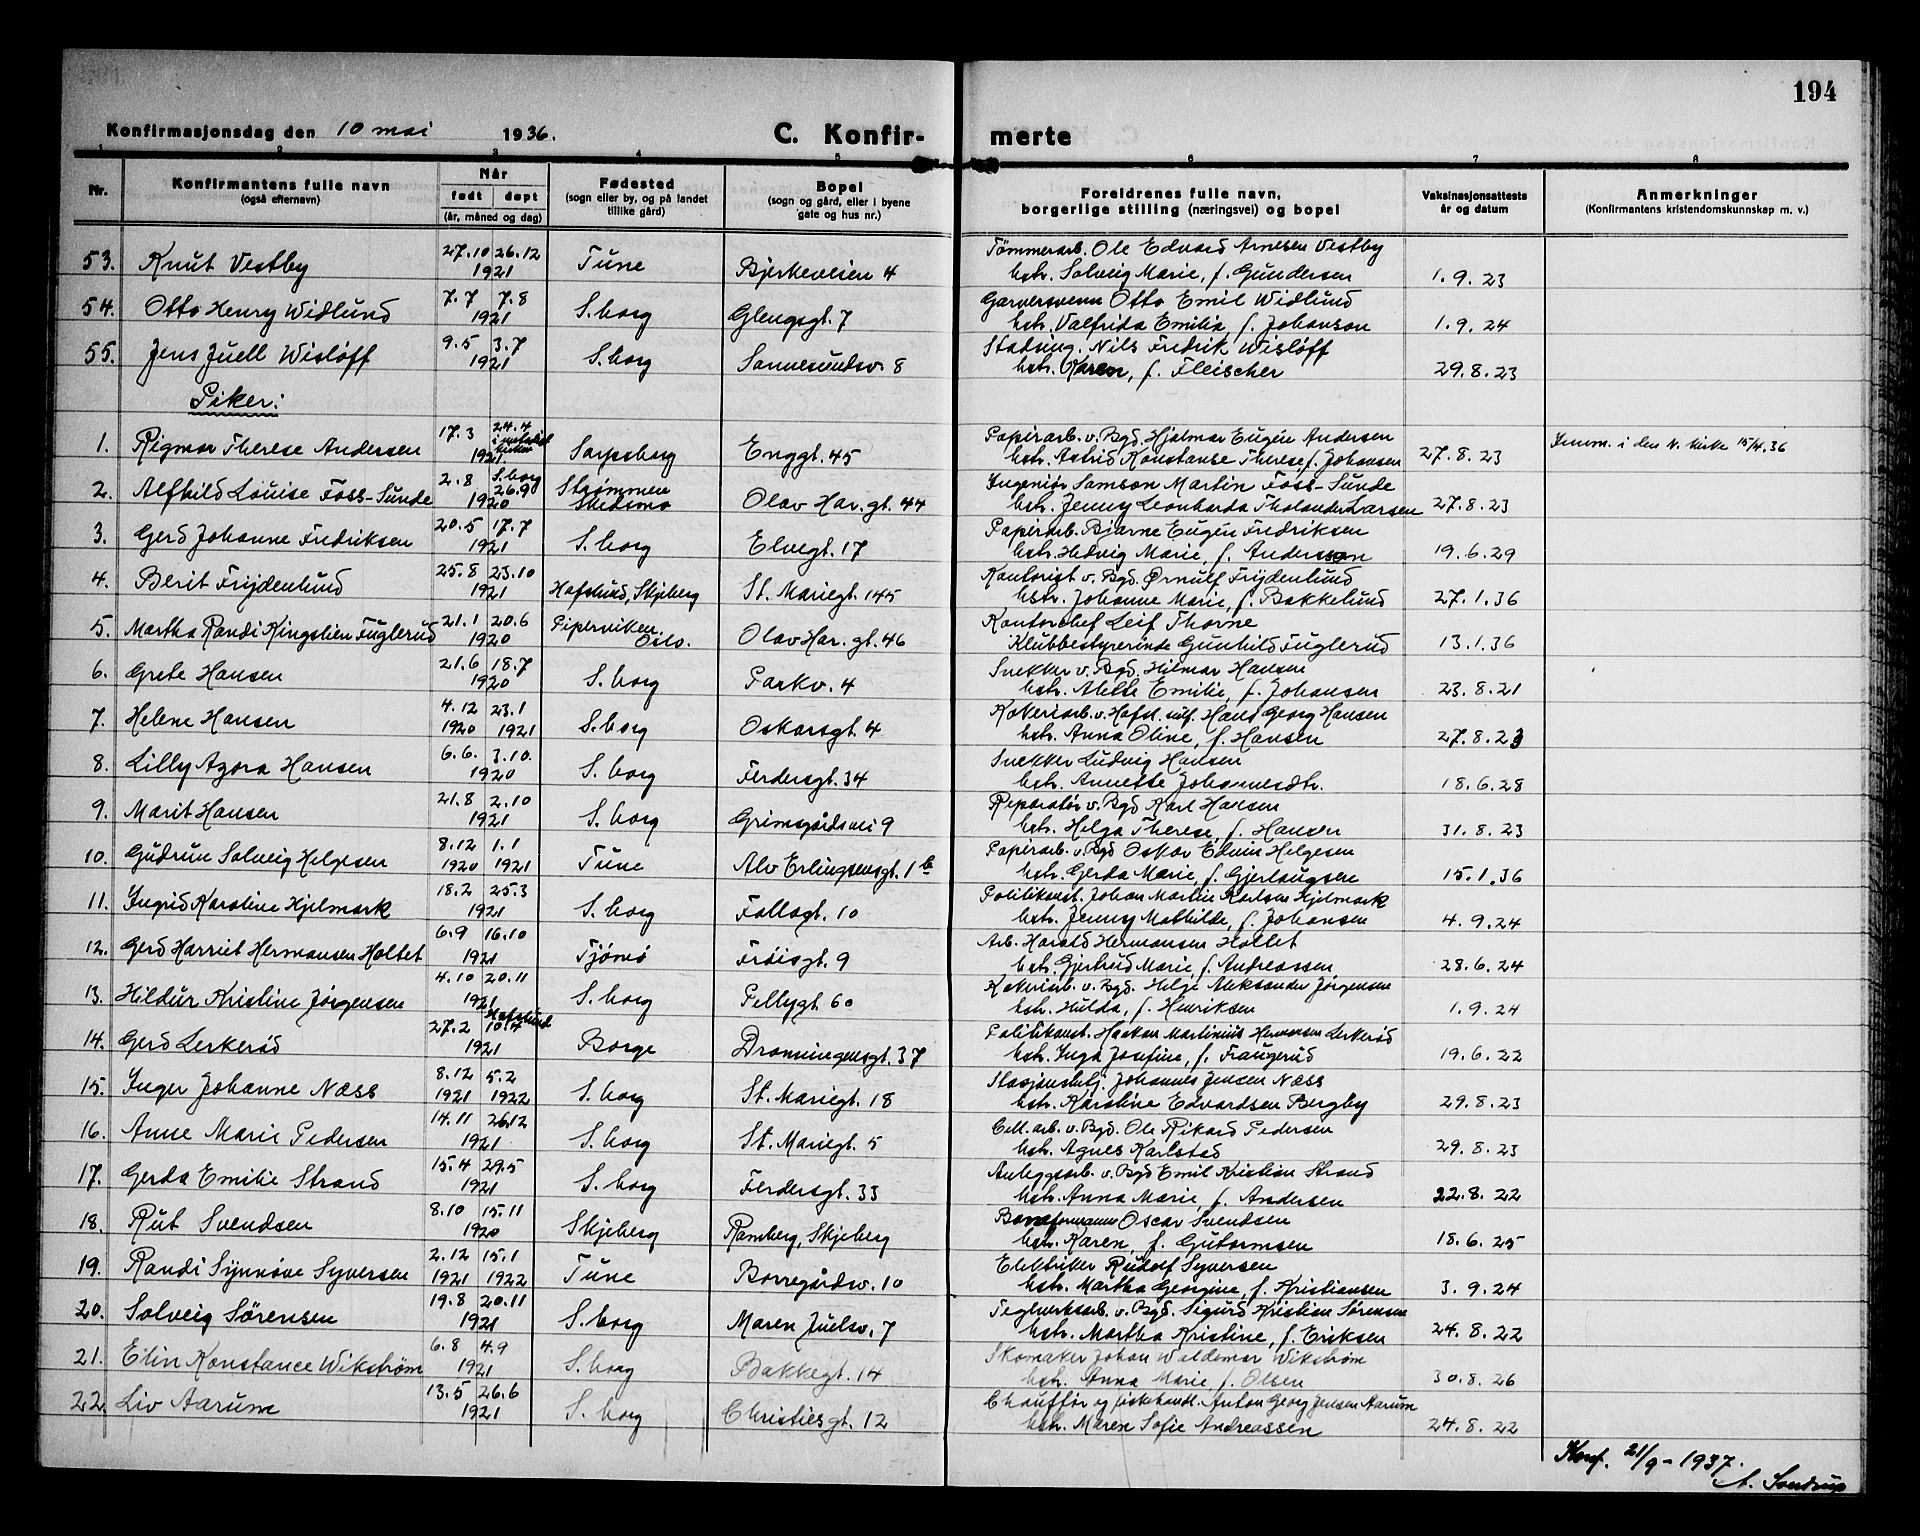 194
Konfirmasjonsdag den 10 mai 1936. C. Konfir- merte
1 2 3 4 5 6 7 8
Nr. Konfirmantens fulle navn (også efternavn) Når født døpt (år, måned og dag) Fødested (sogn eller by, og på landet tillike gård) Bopel (sogn og gård, eller i byene gate og hus nr.) Foreldrenes fulle navn, borgerlige stilling (næringsvei) og bopel Vaksinasjonsattests år og datum Anmerkninger (Konfirmantens kristendomskunnskap m. v.)
53. Knut Vestby 27.10 26.12 1921 Tune Bjrkeveien 4 Tømmerarb. Ole Edvard Arnesen Vestby
hstr. Solveig Marie, f. Gundersen 1.9.23
54. Otto Henry Widlund 7.7 7.8 1921 S.borg Glengsgt. 7 Garversvenn Otto Emil Widlund
hstr. Valfrida Emilia, f. Johanson 1.9.24
55. Jens Juell Wisløff 9.5 3.7 1921 S.borg Sannesundsv. 8 Stadsing. Nils Fredrik Wisløff
hstr. Karen, f. Fleischer 29.8.23
Piker:
1. Rigmor Therese Andersen 17.3 24.4 i metodist kirken 1921 Sarpsborg Enggt. 45 Papirarb. v. Bgd. Hjalmar Eugén Andersen
hstr. Astrid Konstanse Therese, f. Johansen 27.8.23 Innm. i den N. kirke 15/4.36
2. Alfhild Louise Foss-Sunde 2.8 S.borg 26.9 1920 Strømmen Skedsmo Olav Har. gt. 44 Ingeniør Samson Martin Foss-Sunde
hstr. Jenny Leonharda Tholander Larsen 27.8.23
3. Gerd Johanne Fredriksen 20.5 17.7 1921 S.borg Elvegt. 17 Papirarb. Bjarne Eugén Fredriksen
hstr. Hedvig Marie, f. Andersson 19.6.29
4. Berit Frydenlund 25.8 23.10 1921 Hafslund, Skjeberg St. Mariegt. 145 Kontorist v. Bgd. Ørnulf Frydenlund
hstr. Johanne Marie, f. Bakkelund 27.1.36
5. Martha Randi Ringslien Fuglerud 21.1 20.6 1920 Piperviken Oslo. Olav Har. gt. 46 Kontorchef Leif Thorne
Klubbestyrerinde Gunhild Fuglerud 13.1.36
6. Grete Hansen 21.6 18.7 1920 S.borg Parkv. 4 Snekker v. Bgd. Hilmar Hansen
hstr. Alette Emilie, f. Johansen 23.8.21
7. Helene Hansen 4.12 1920 23.1 1921 S.borg Oskarsgt. 4 Kokeriarb. v. Hafsl. sulf. Hans Georg Hansen
hstr. Anna Oline, f. Hansen 27.8.23
8. Lilly Agora Hansen 6.6. 3.10. 1920 S.borg Ferdersgt. 34 Snekker Ludvig Hansen
hstr. Annette Johannesdtr. 18.6.28
9. Marit Hansen 21.8 2.10 1921 S.borg Grimsgårdsvei 9 Reparatør v. Bgd Karl Hansen
hstr. Helga Therese, f. Hansen 31.8.23
10. Gudrun Solveig Helgesen 8.12 1920 1.1 1921 Tune Alv Erlingsensgt. 1 b Papirarb. v. Bgd Oskar Edvin Helgesen
hstr. Gerda Marie, f. Gjerlaugsen 15.1.36
11. Ingrid Karoline Hjelmark 18.2 25.3 1921 S.borg Fallagt. 10 Politikonst. Johan Martin Karlsen Hjelmark
hstr. Jenny Mathilde, f. Johansen 4.9.24
12. Gerd Harriet Hermansen Holtet 6.9 16.10 1921 Tjømø Frøisgt. 9 Arb. Harald Hermansen Holtet
hstr. Gjertrud Marie, f. Andreassen 28.6.24
13. Hildur Kristine Jørgensen 4.10 20.11 1921 S.borg Pellygt. 60 Kokeriarb. v. Bgd. Helge Aleksander Jørgensen
hstr. Hulda, f. Henriksen 1.9.24
14. Gerd Lerkerød 27.2 Hafslund 10.4 1921 Borge Dronningensgt. 37 Politikonst. Haakon Martinius Hermansen Lerkerød
hstr. Inga Josefine, f. Frangerud 19.6.22
15. Inger Johanne Næss 8.12 1921 5.2 1922 S.borg St. Mariegt. 18 Stasjonsbetj. Johannes Jensen Næss
hstr. Karoline Edvardsen Bergby 29.8.23
16. Anne Marie Pedersen 14.11 26.12 1921 S.borg St. Mariegt. 5 Cell.arb. v. Bgd. Ole Rikard Pedersen
hstr. Agnes Karlstad 29.8.23
17. Gerda Emilie Strand 15.4 29.5 1921 S.borg Ferdersgt. 33 Anleggsarb. v. Bgd Emil Kristian Strand
hstr. Anna Marie, f. Andersen 22.8.22
18. Rut Svendsen 8.10 15.11 1920 Skjeberg Ramberg, Skjeberg Baneformann Oscar Svendsen
hstr. Karen, f. Gutormsen 18.6.25
19. Randi Synnøve Syversen 2.12 1921 15.1 1922 Tune Borregårdsv. 10 Elektriker Rudolf Syversen
hstr. Martha Georgine, f. Kristiansen 3.9.24
20. Solveig Sørensen 19.8 20.11 1921 S.borg Maren Juelsv. 7 Teglverksarb. v. Bgd. Sigurd Kristian Sørensen
hstr. Martha Kristine, f. Eriksen 24.8.22
21. Elin Konstance Wikstrøm 6.8 4.9 1921 S.borg Bakkegt. 14 Skomaker Johan Waldemar Wikstrøm
hstr. Anna Marie f. Olsen 30.8.26
22. Liv Aarum 13.5 26.6 1921 S.borg Christiesgt. 12 Chauffør og fiskehandl. Anton Georg Jensen Aarum
hstr. Maren Sofie Andreassen 24.8.22
Konf. 21/9-1937.
A. Sandrup